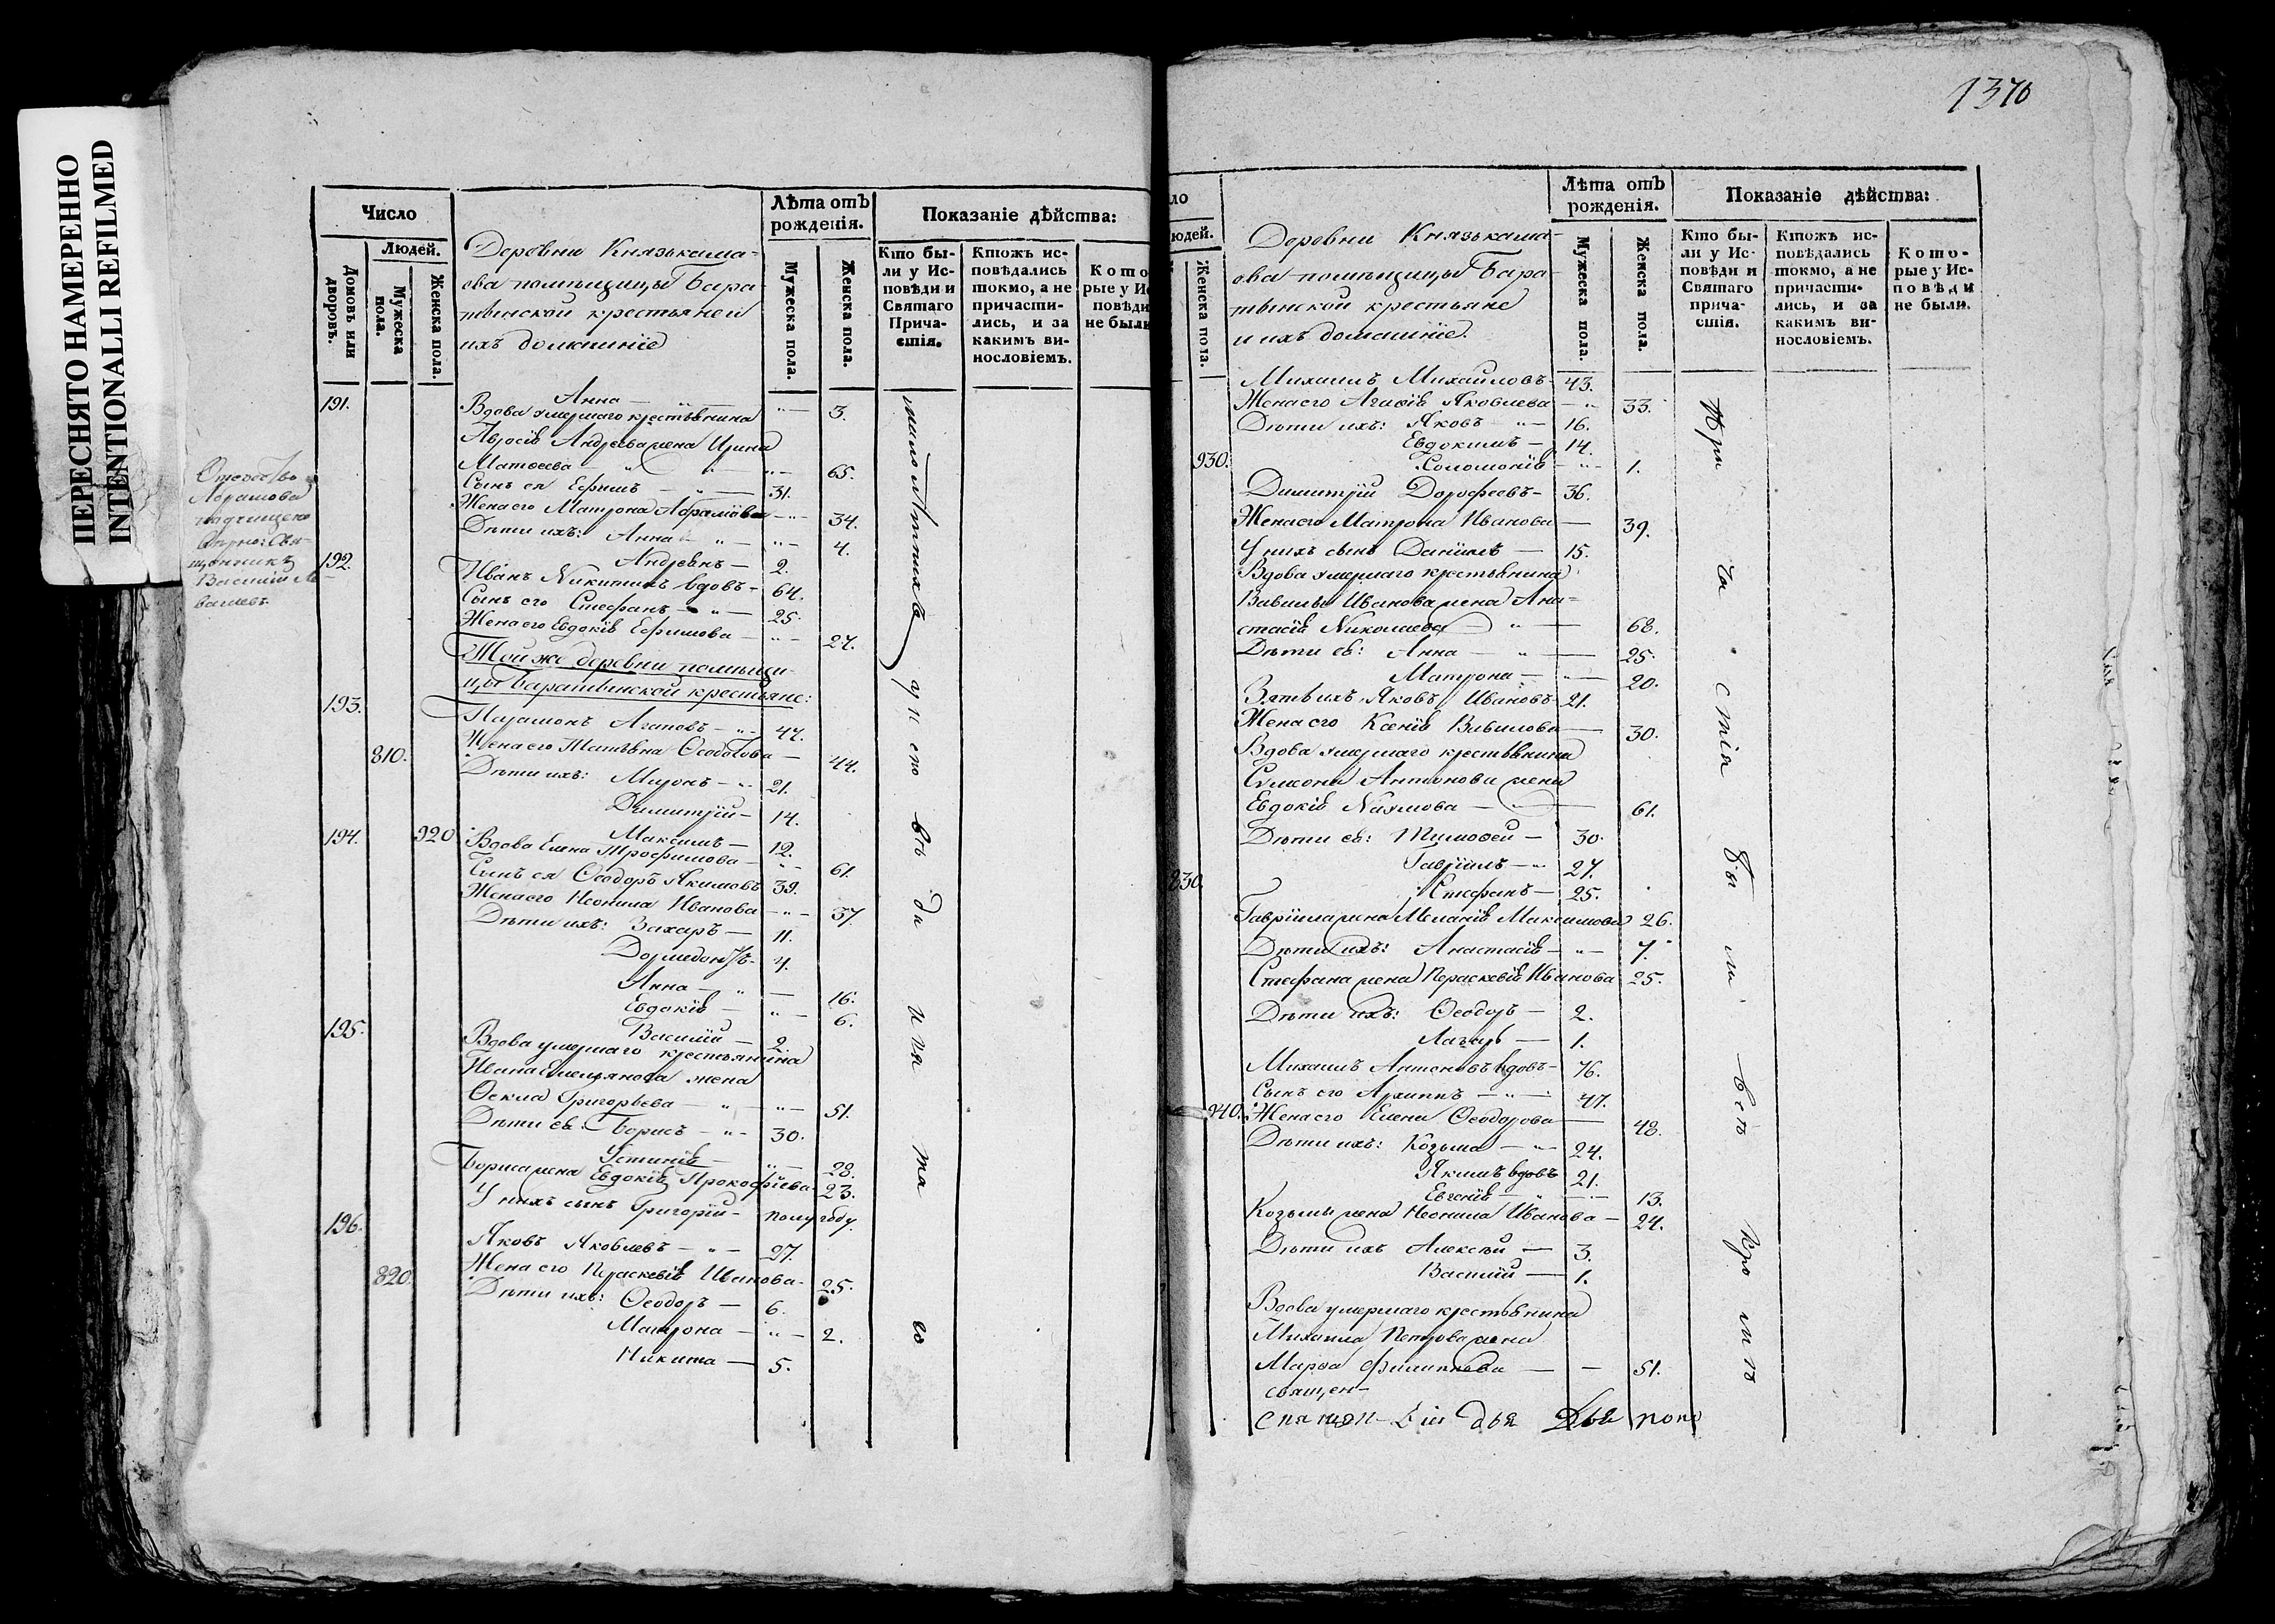 ПЕРЕСНЯТО НАМЕРЕННО
INTENTIONALLI REFILMED
1370
Число
Людей.
Домовъ или дворовъ.
Мужеска пола.
Женска пола.
Деревни Князькама-
ева помѣщицы Бара-
тѣинской крестьяне и
ихъ домашніе
Лѣта отъ рожденія.
Мужеска пола.
Женска пола.
Показаніе дѣйства:
Кто бы-
ли у Ис-
повѣди и
Святаго
Прича-
стія.
Ктожъ ис-
повѣдались
токмо, а не
причасти-
лись, и за
какимъ ви-
нословіемъ.
Кото
рые у Ис
повѣди
не были
Отечество
Абрамова
подчищено
вѣрно: Свя-
щенникъ
Василій
Анна — „ — 3.
191. Вдова умершаго крестьянина
Андреева жена Ирина
Матѳеева — „ — 65.
Сынъ ея Ефимъ — „ — 31.
Жена его Матрона Абрамова — „ — 34.
Дѣти ихъ: Анна — „ — 4.
Андреянъ — 2.
192. Иванъ Никитинъ вдовъ — 64.
Сынъ его Стефанъ — „ — 25.
Жена его Евдокія Ефимова — „ — 27.
Тойже деревни помѣщи-
цы Баратѣинской крестьяне:
193. Парамонъ Агаповъ — „ — 47.
810. Жена его Татьяна Ѳеодотова — 44.
Дѣти ихъ: Миронъ — „ — 21.
Димитрій — 14.
920 Максимъ — 12.
194. Вдова Елена Трофимова — „ — 61.
Сынъ ея Ѳеодоръ Якимовъ 39.
Жена его Неонила Иванова — „ — 37.
Дѣти ихъ: Захаръ — 11.
Дормедонтъ — 4.
Анна — „ — 16.
Евдокія — „ — 6.
Василій — 2.
195. Вдова умершаго крестьянина
Ивана Емельянова жена
Ѳекла Григорьева — „ — „ — 51.
Дѣти ея: Борисъ — „ — 30.
Устинія — „ — 28.
Бориса жена Евдокія Прокофьева — 23.
У нихъ сынъ Григорій — полугоду.
196. Яковъ Яковлевъ — „ — 27.
820. Жена его Параскевія Иванова — 25.
Дѣти ихъ: Ѳеодоръ — 6.
Матрона — „ — 2.
Никита — 5.
ло
юдей.
Женска пола.
Деревни Князькама-
ева помѣщицы Бара-
тѣинской крестьяне
и ихъ домашніе.
Лѣта отъ рожденія.
Мужеска пола.
Женска пола.
Показаніе дѣйства:
Кто бы-
ли у Ис-
повѣди и
Святаго
прича-
стія.
Ктожъ ис-
повѣдались
токмо, а не
причасти-
лись, и за
какимъ ви-
нословіемъ.
Кото-
рые у Ис-
повѣди
не были.
Михаилъ Михайловъ — 43.
Жена его Агафія Яковлева — „ — 33.
Дѣти ихъ: Яковъ — „ — 16.
Евдокимъ — 14.
930. Соломонія — „ — 1.
Димитрій Дорофеевъ — 36.
Жена его Матрона Иванова — 39.
У нихъ сынъ Даніилъ — 15.
Вдова умершаго крестьянина
Вавилы Иванова жена Ана-
стасія Николаева — „ — 68.
Дѣти ея: Анна — „ — 25.
Матрона — „ — 20.
Зять ихъ Яковъ Ивановъ 21.
Жена его Ксенія Вавилова — 30.
Вдова умершаго крестьянина
Симеона Антонова жена
Евдокія Наумова — „ — 61.
Дѣти ея: Тимофей — 30.
Гавріилъ — „ 27.
830. Стефанъ — 25.
Гавріила жена Меланія Максимова 26.
Дѣти ихъ: Анастасія — „ — 7.
Стефана жена Параскевія Иванова 25.
Дѣти ихъ: Ѳеодоръ — 2.
Лазарь — 1.
Михаилъ Антоновъ вдовъ — 76.
Сынъ его Архиппъ — „ — 47.
940. Жена его Елена Ѳеодорова — 48.
Дѣти ихъ: Козьма — „ 24.
Якимъ вдовъ 21.
Евгенія — „ — 13.
Козьмы жена Неонила Иванова — 24.
Дѣти ихъ Алексѣй — 3.
Василій — 1.
Вдова умершаго крестьянина
Михаила Петрова жена
Марѳа Филиппова — — 51.
священ-